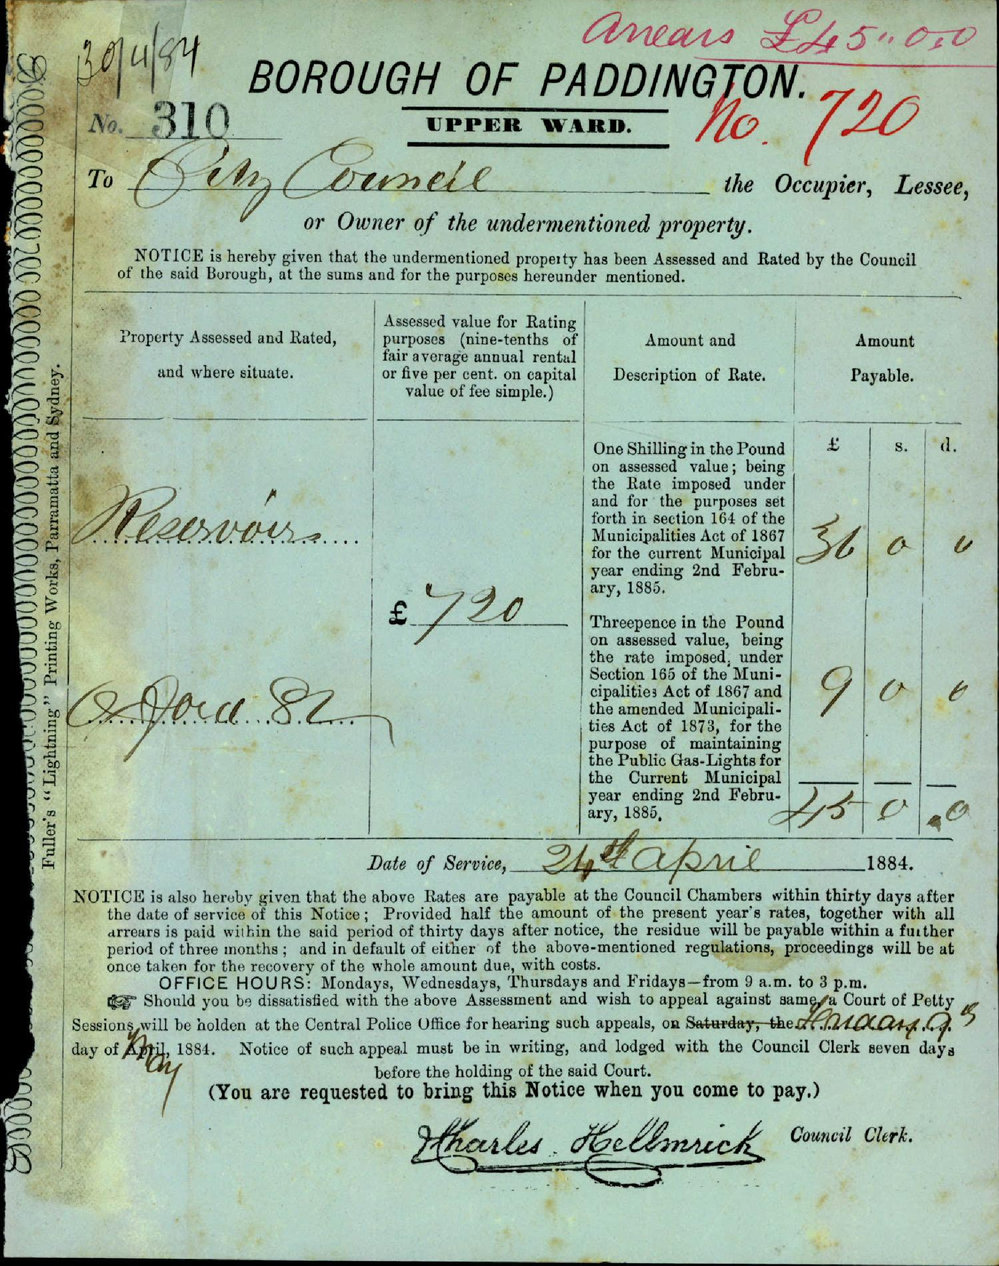 Arrears £45..0.0
30/4/84
BOROUGH OF PADDINGTON.
No. 310
UPPER WARD.
No. 720
To City Council the Occupier, Lessee,
or Owner of the undermentioned property.
NOTICE is hereby given that the undermentioned property has been Assessed and Rated by the Council
of the said Borough, at the sums and for the purposes hereunder mentioned.
Property Assessed and Rated,
and where situate.
Assessed value for Rating
purposes (nine-tenths of
fair average annual rental
or five per cent. on capital
value of fee simple.)
Amount and
Description of Rate.
Amount
Payable.
£ s. d.
Reservoir
Oxford St
£ 720
One Shilling in the Pound
on assessed value; being
the Rate imposed under
and for the purposes set
forth in section 164 of the
Municipalities Act of 1867
for the current Municipal
year ending 2nd Febru-
ary, 1885.
36 0 0
Threepence in the Pound
on assessed value, being
the rate imposed, under
Section 165 of the Muni-
cipalities Act of 1867 and
the amended Municipali-
ties Act of 1873, for the
purpose of maintaining
the Public Gas-Lights for
the Current Municipal
year ending 2nd Febru-
ary, 1885.
9 0 0
45 0 .0
Date of Service, 24th April 1884.
NOTICE is also hereby given that the above Rates are payable at the Council Chambers within thirty days after
the date of service of this Notice; Provided half the amount of the present year's rates, together with all
arrears is paid within the said period of thirty days after notice, the residue will be payable within a further
period of three months; and in default of either of the above-mentioned regulations, proceedings will be at
once taken for the recovery of the whole amount due, with costs.
OFFICE HOURS: Mondays, Wednesdays, Thursdays and Fridays—from 9 a.m. to 3 p.m.
☞ Should you be dissatisfied with the above Assessment and wish to appeal against same, a Court of Petty
Sessions will be holden at the Central Police Office for hearing such appeals, on Saturday, the Friday 9th
day of April, May 1884. Notice of such appeal must be in writing, and lodged with the Council Clerk seven days
before the holding of the said Court.
(You are requested to bring this Notice when you come to pay.)
Charles Hellmrick Council Clerk.
Fuller's "Lightning" Printing Works, Parramatta and Sydney.